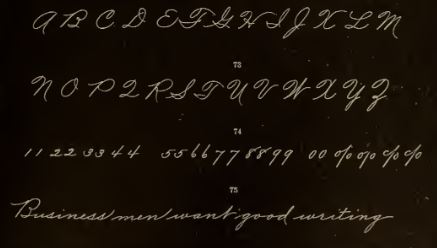 A B C D E F G H I J K L M
73
N O P Q R S T U V W X Y Z
74
11 22 33 44 55 66 77 88 99 00 % % % %
75
Business men want good writing